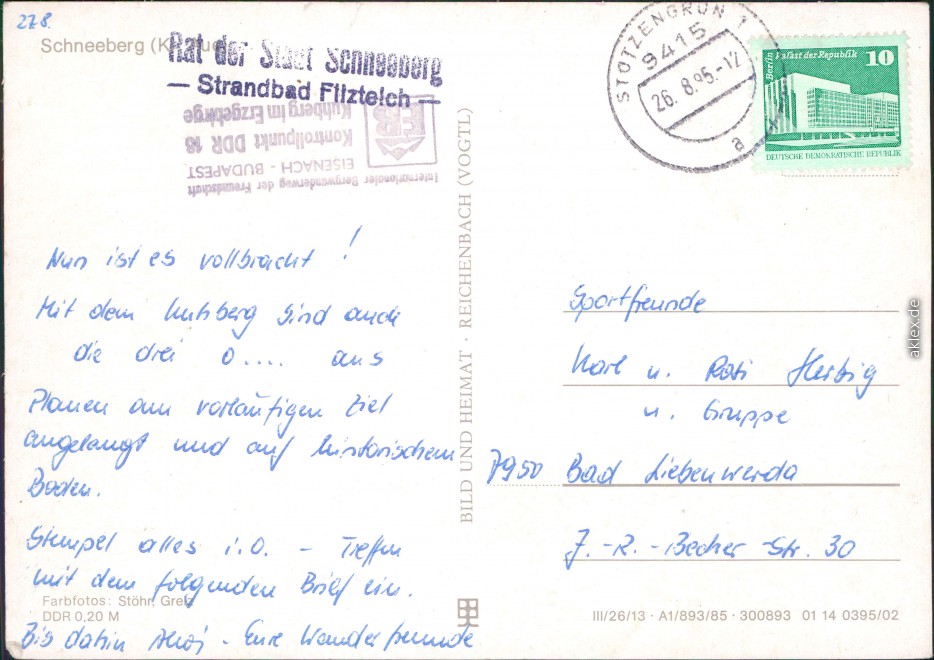 27.8.
Schneeberg (K
Rat der Stadt Schneeberg
— Strandbad Filzteich —
Kuhberg im Erzgebirge
Kontrollpunkt DDR 18
EISENACH - BUDAPEST
Internationaler Bergwanderweg der Freundschaft
Nun ist es vollbracht!
Mit dem Kuhberg sind auch
die drei O.... aus
Plauen am vorläufigen Ziel
angelangt und auf historischem
Boden.
Stempel alles i.O. - Treffen
mit dem folgenden Brief ein.
Farbfotos: Stöhr, Greiz
DDR 0,20 M
Bis dahin Ahoj - Eure Wanderfreunde
BILD UND HEIMAT · REICHENBACH (VOGTL)
STÜTZENGRÜN 1
9415
26. 8.85.-12
a
Berlin Palast der Republik
10
DEUTSCHE DEMOKRATISCHE REPUBLIK
Sportfreunde
Karl u. Rosi Herbig
u. Gruppe
7950 Bad Liebenwerda
J.-R.-Becher-Str. 30
III/26/13 · A1/893/85 · 300893 01 14 0395/02
aklex.de